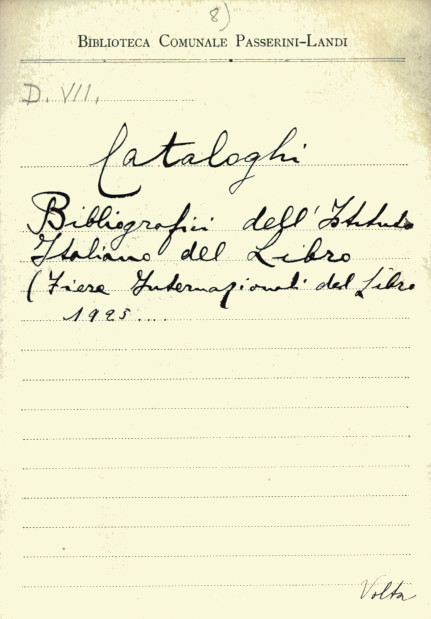 8)
BIBLIOTECA COMUNALE PASSERINI-LANDI
D. VII.
Cataloghi
Bibliografici dell'Istituto
Italiano del Libro
(Fiere Internazionali del Libro
1925....
Volta